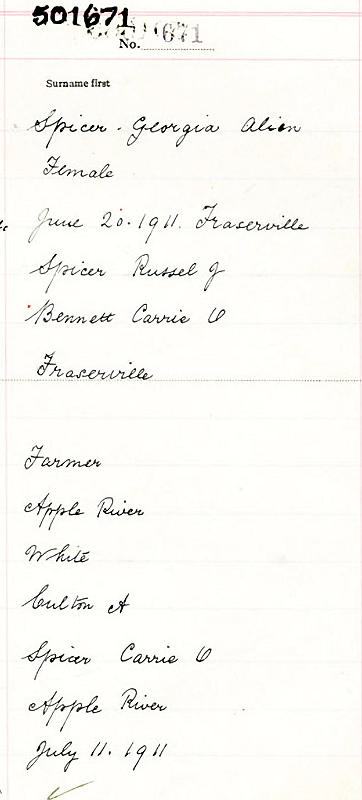 501671
No. 671
Surname first
Spicer. Georgia Alien
Female
June 20. 1911. Fraserville
Spicer Russel J
Bennett Carrie O
Fraserville
Farmer
Apple River
White
Culton A
Spicer Carrie O
Apple River
July 11. 1911